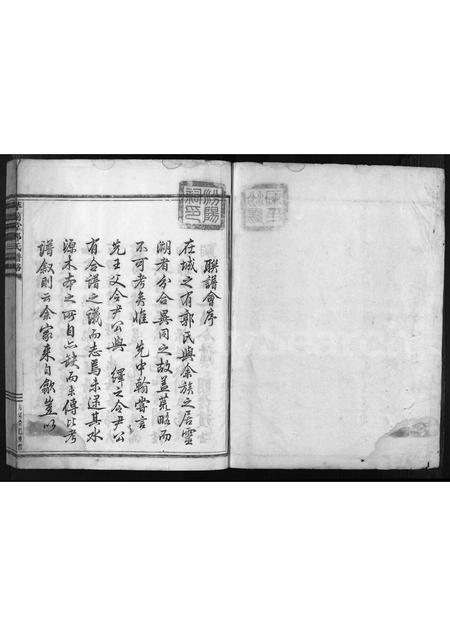 聯譜會序
在城之有郭氏與余族之居靈
湖者分合異同之故蓋荒略而
不可考矣惟 先中翰嘗言
先王父令尹公與 繹之令尹公
有合譜之議而志焉未逮其水
源木本之所自亦缺而未傳比考
譜敘則云余家來自歙豈以
汾陽
祠印